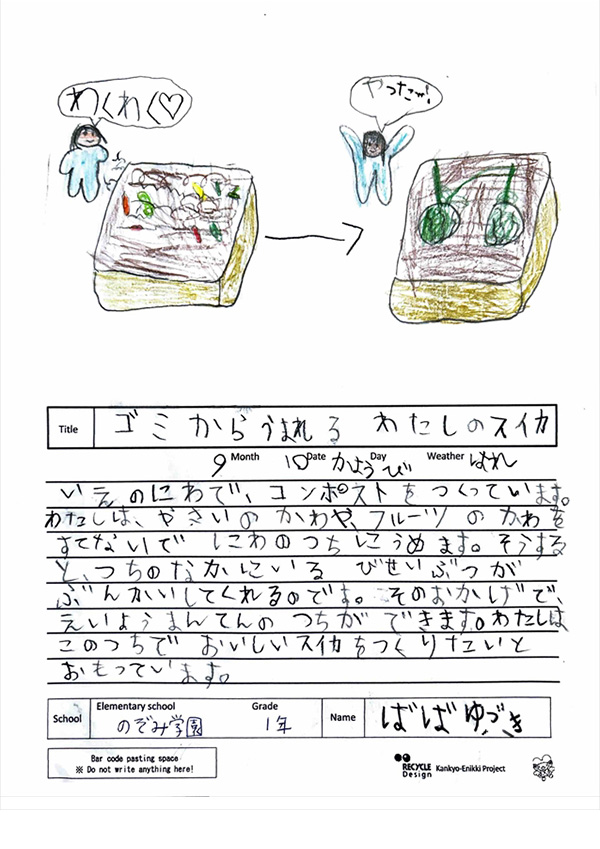 わくわく♡
やったー!
Title ゴミからうまれる わたしのスイカ
9 Month 10 Date かようび Day Weather はれ
いえのにわで、コンポストをつくっています。
わたしは、やさいのかわや、フルーツのかわを
すてないで にわのつちにうめます。そうする
と、つちのなかにいる びせいぶつが
ぶんかいしてくれるのです。そのおかげで、
えいようまんてんの つちが できます。わたしは
このつちで おいしいスイカをつくりたいと
おもっています。
School Elementary school のぞみ学園 Grade 1年 Name ばば ゆづき
Bar code pasting space
※ Do not write anything here!
RECYCLE Design Kankyo-Enikki Project